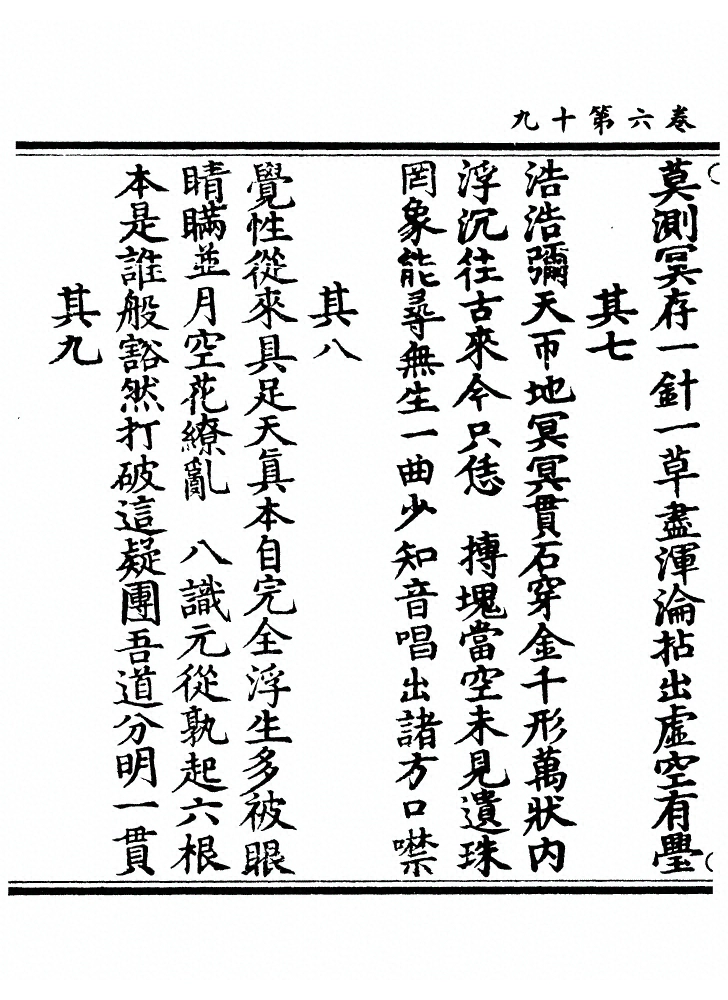 卷六第十九
莫測冥存一針一草盡渾淪拈出虛空有璺
其七
浩浩彌天帀地冥冥貫石穿金千形萬狀內
浮沉往古來今只恁　摶塊當空未見遺珠
罔象能尋無生一曲少知音唱出諸方口噤
其八
覺性從來具足天眞本自完全浮生多被眼
睛瞞並月空花繚亂　八識元從孰起六根
本是誰般豁然打破這疑團吾道分明一貫
其九